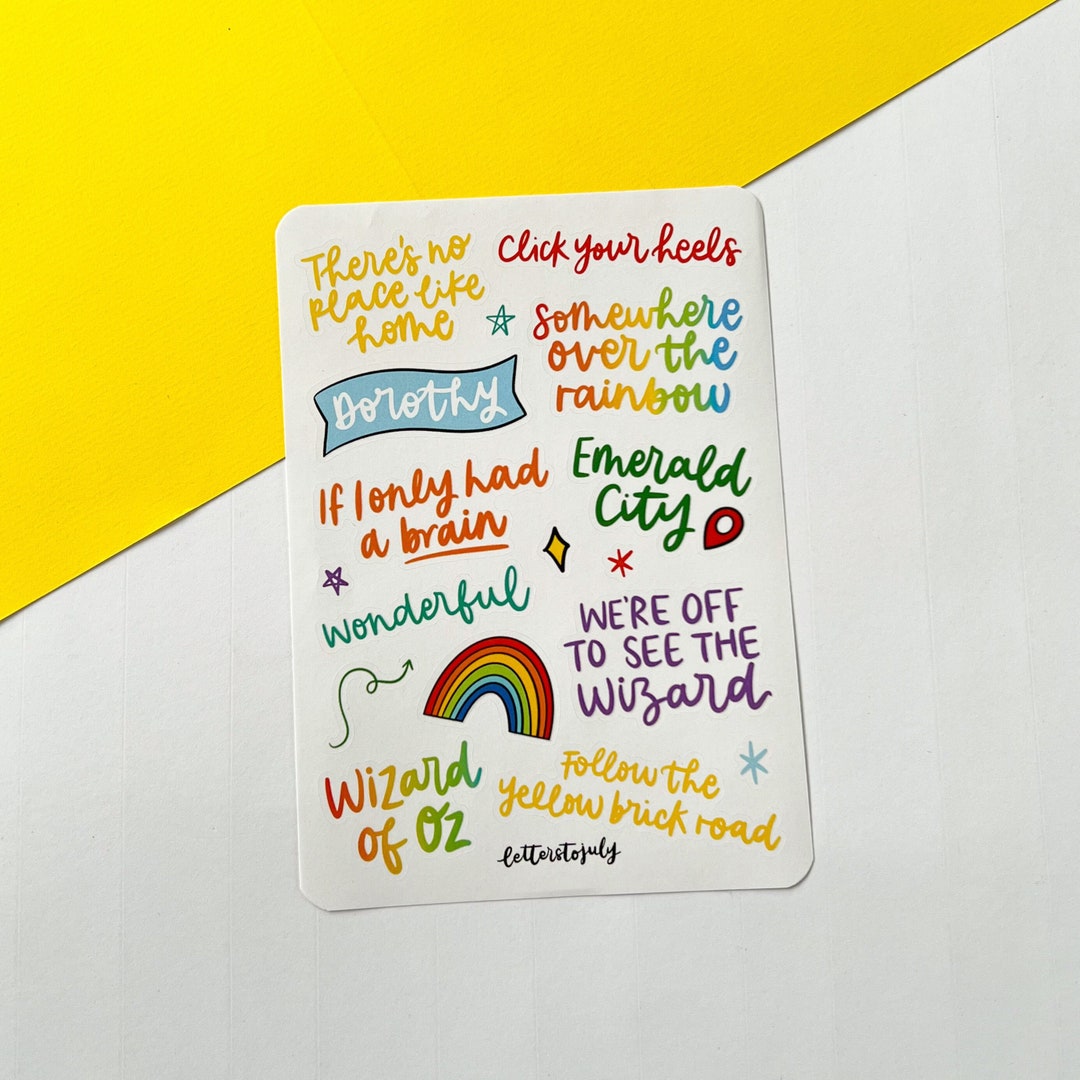 There's no
place like
home
Click your heels
Somewhere
over the
rainbow
Dorothy
If I only had
a brain
Emerald
City
wonderful
WE'RE OFF
TO SEE THE
Wizard
Wizard
of Oz
Follow the
yellow brick road
letterstojuly